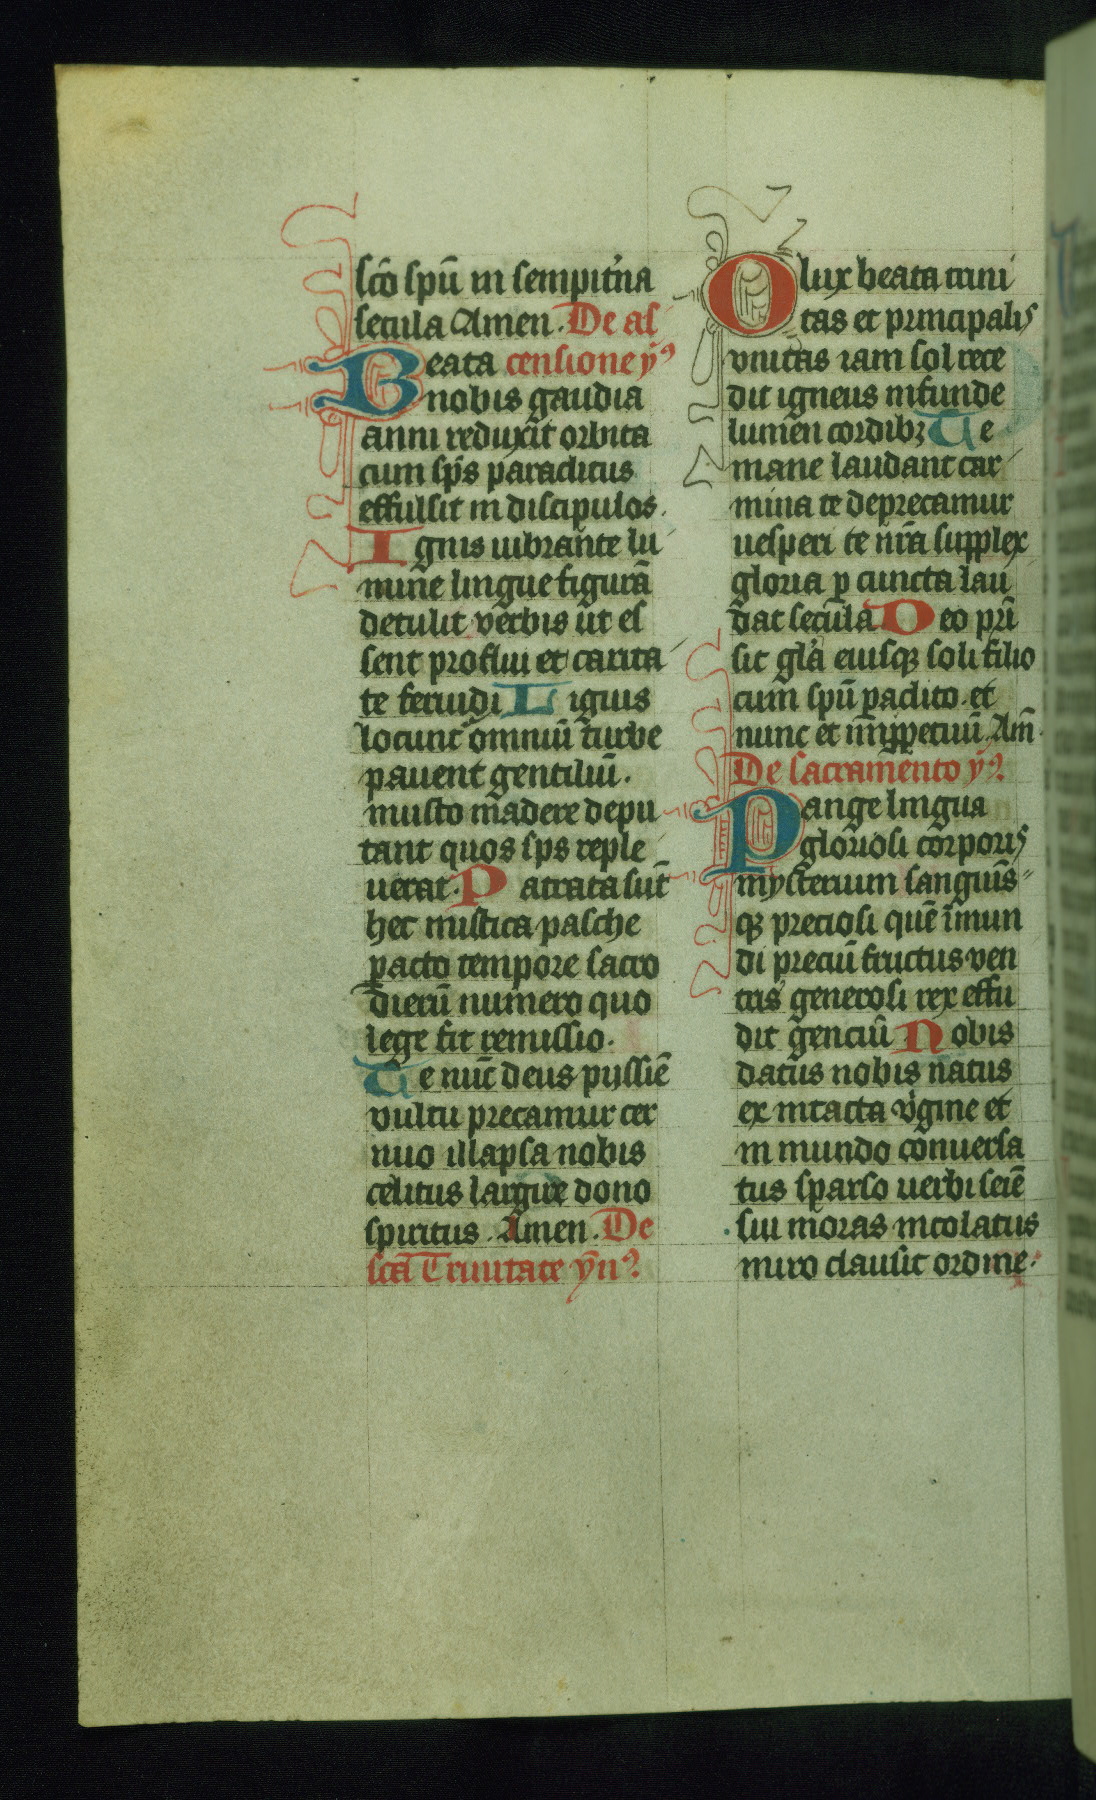 sco̅ spu̅ in sempit͛na
secula Amen. De as
Beata censione yꝰ
nobis gaudia
anni reduxit orbita
cum sp̅s paraclitus
effulsit in discipulos.
Ignis uibrante lu
mine lingue figura̅
detulit verbis ut es
sent proflui et carita
te feruidi Ligius
locunt omniu̅ turbe
pauent gentiliu̅.
musto madere depu
tant quos sp̅s reple
uerat. Patrata su̅t
hec mistica pasche
ꝑacto tempore sacro
dieru̅ numero quo
lege fit remissio.
Te nu̅c deus pijssie̅
vultu precamur cer
nuo illapsa nobis
celitus largire dono
spiritus. Amen. De
sca̅ Trinitate y̅nꝰ.
O lux beata trini
tas et principalis
vnitas iam sol rece
dit igneus infunde
lumen cordibꝫ Te
mane laudant car
mina te deprecamur
uesperi te nr̅a supplex
gloria ꝑ cuncta lau
dat secula Deo pr̅i
sit gla̅ eiusqꝫ soli filio
cum spu̅ ꝑaclito et
nunc et imꝑpetuu̅ Am̅
De sacramento yꝰ.
Pange lingua
gloriosi corporis
mysterium sanguīs
qꝫ preciosi que̅ i̅mun
di preciu̅ fructus ven
tris generosi rex effu
dit genciu̅ Nobis
datus nobis natus
ex intacta v͛gine et
in mundo conuersa
tus sparso uerbi seie̅
sui moras incolatus
miro clausit ordine.